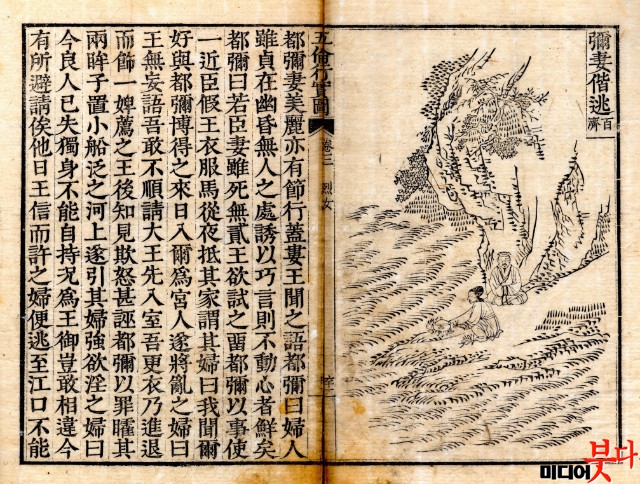 彌妻偕逃
百濟
五倫行實圖
卷三 烈女
都彌妻美麗亦有節行蓋婁王聞之語都彌曰婦人
雖貞在幽昏無人之處誘以巧言則不動心者鮮矣
都彌曰若臣妻雖死無貳王欲試之留都彌以事使
一近臣假王衣服馬從夜抵其家謂其婦曰我聞爾
好與都彌博得之來日入爾爲宮人遂將亂之婦曰
王無妄語吾敢不順請大王先入室吾更衣乃進退
而飾一婢薦之王後知見欺怒甚誣都彌以罪矐其
兩眸子置小船泛之河上遂引其婦強欲淫之婦曰
今良人已失獨身不能自持況爲王御豈敢相違今
有所避請俟他日王信而許之婦便逃至江口不能
미디어 붓다